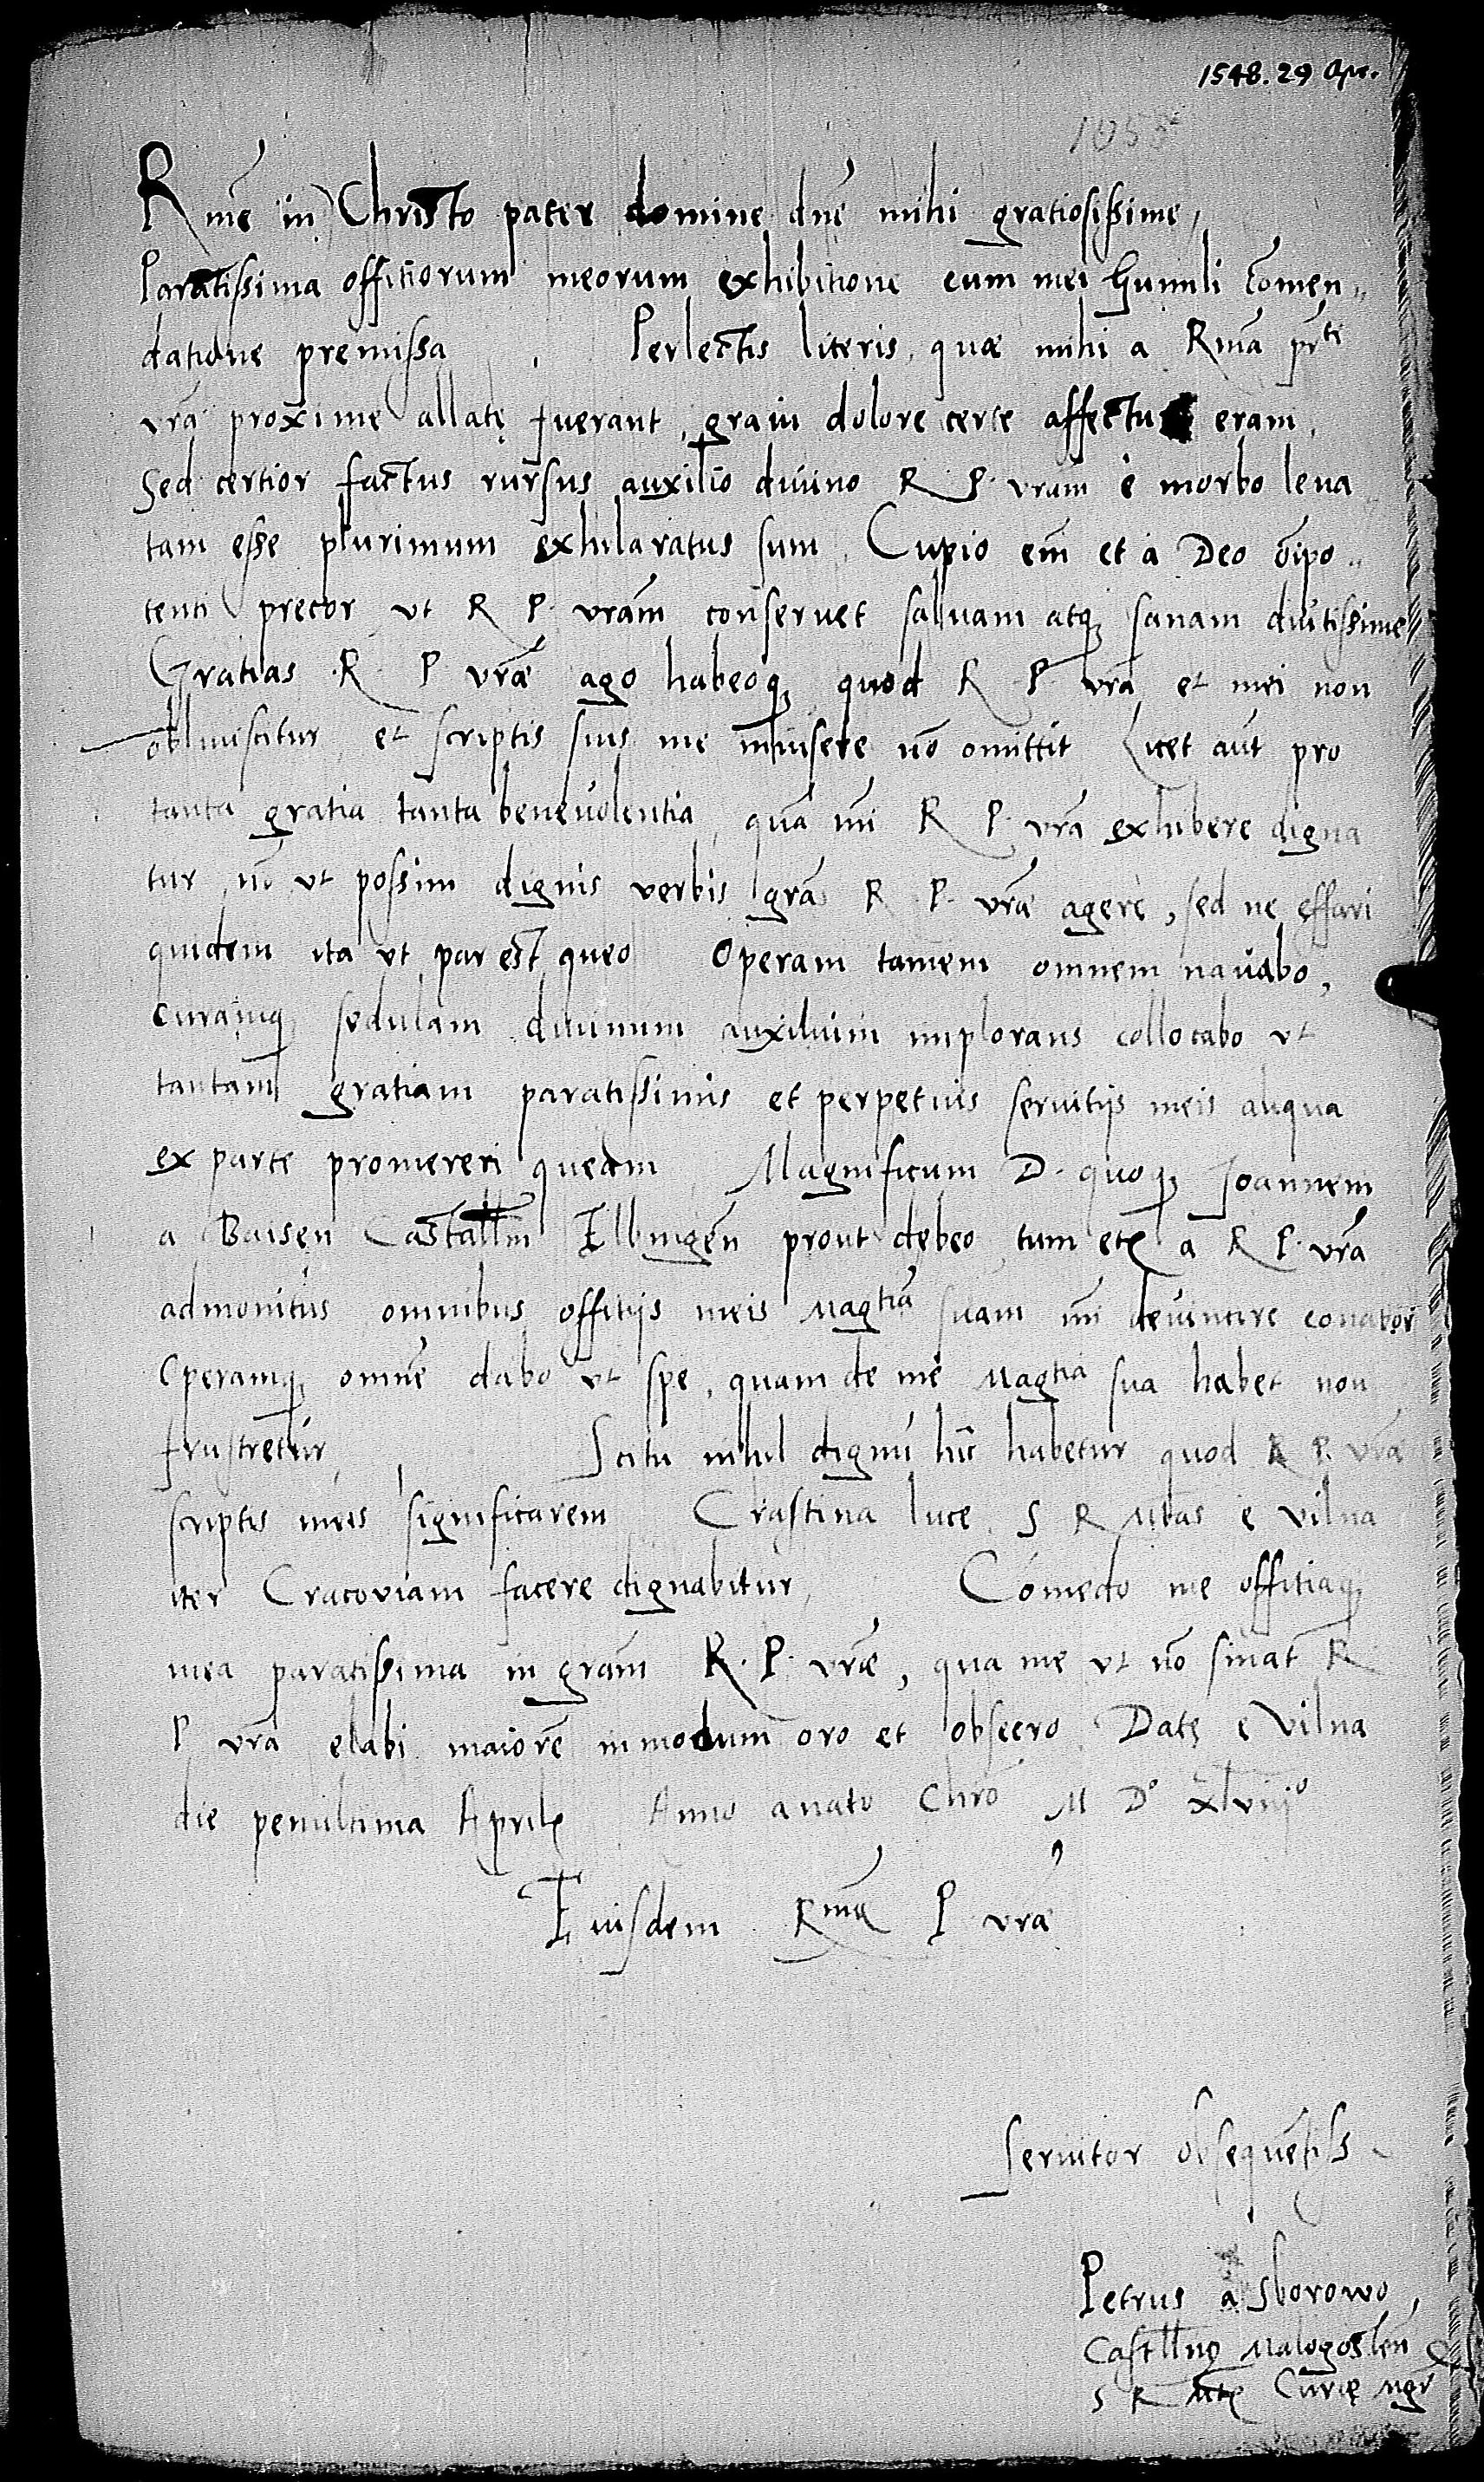 1548. 29 Apr.
1055
Rme in Christo pater domine dne mihi gratiosissime,
Paratissima offitiorum meorum exhibitione cum mei humili comen„
datione premissa . Perlectis literis, quae mihi a Rma prte
vra proxime allatę fuerant, graui dolore certe affectus eram,
Sed certior factus rursus auxilio diuino R P. vram è morbo leua
tam esse plurimum exhilaratus sum. Cupio em et à Deo oipo„
tenti precor vt R P. vram conseruet saluam atq sanam diutissime
Gratias R P vrae ago habeoq, quod R P vra et mei non
obliuiscitur et scriptis suis me inuisere no omittit Licet aut pro
tanta gratia tanta beneuolentia, qua mi R P. vra exhibere digna
tur no vt possim dignis verbis gras R P. vrae agere, sed ne effari
quidem ita vt par est queo Operam tamem omnem nauabo,
curamq sedulam diuinum auxilium implorans collocabo vt
tantam gratiam paratissimis et perpetuis seruitijs meis aliqua
ex parte promereri queam Magnificum D. quoq Joannem
a Baisen Castallm Elbingen prout debeo tum etc a R P. vra
admonitus omnibus offitijs meis Magtia suam mi deuincire conabor
Operamq omne dabo vt spe, quam de me Magtia sua habet non
frustretur, Scitu nihil dignu hic habetur quod R P. vrae
scriptis meis significarem Crastina luce S R Mtas e Vilna
iter Cracoviam facere dignabitur, Comedo me offitiaq
mea paratissima in gram R. P. vrae, qua me vt no sinat R
P vra elabi maiore in modum oro et obsecro Datę e Vilna
die penultima Aprilis Anno a nato Chro M Do xlviijo
Eiusdem Rmę P vrae
Seruitor obsequetiss
Petrus à Sborowo,
Castllnus Malogosten &
S R Mtis Curię Mgr